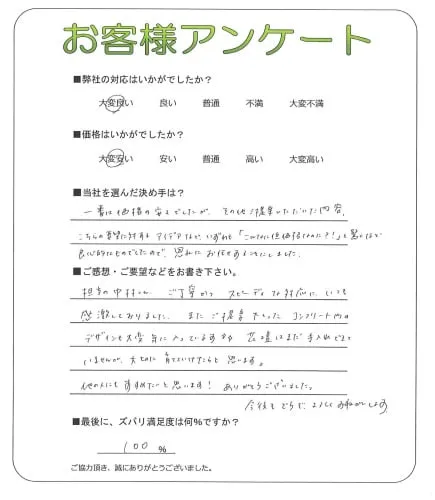 お客様アンケート
■弊社の対応はいかがでしたか？
大変良い 良い 普通 不満 大変不満
■価格はいかがでしたか？
大変安い 安い 普通 高い 大変高い
■当社を選んだ決め手は？
一番は価格の安さでしたが、その他ご提案いただいた内容、
こちらの要望に対するアイデアなど、いずれも「こんなに低価格なのに？！」と驚くほど
良心的なものでしたので、思わずお任せすることにしました。
■ご感想・ご要望などをお書き下さい。
担当の中村さん、ご丁寧かつスピーディな対応に、いつも
感激しておりました。またご提案下さったコンクリート内の
デザインも大変気に入っています 花壇はまだ手入れできて
いませんが、大切に育てていけたらと思います。
他の人にもすすめたいと思います！ありがとうございました。
今後ともどうぞ、よろしくお願いします
■最後に、ズバリ満足度は何％ですか？
100 ％
ご協力頂き、誠にありがとうございました。